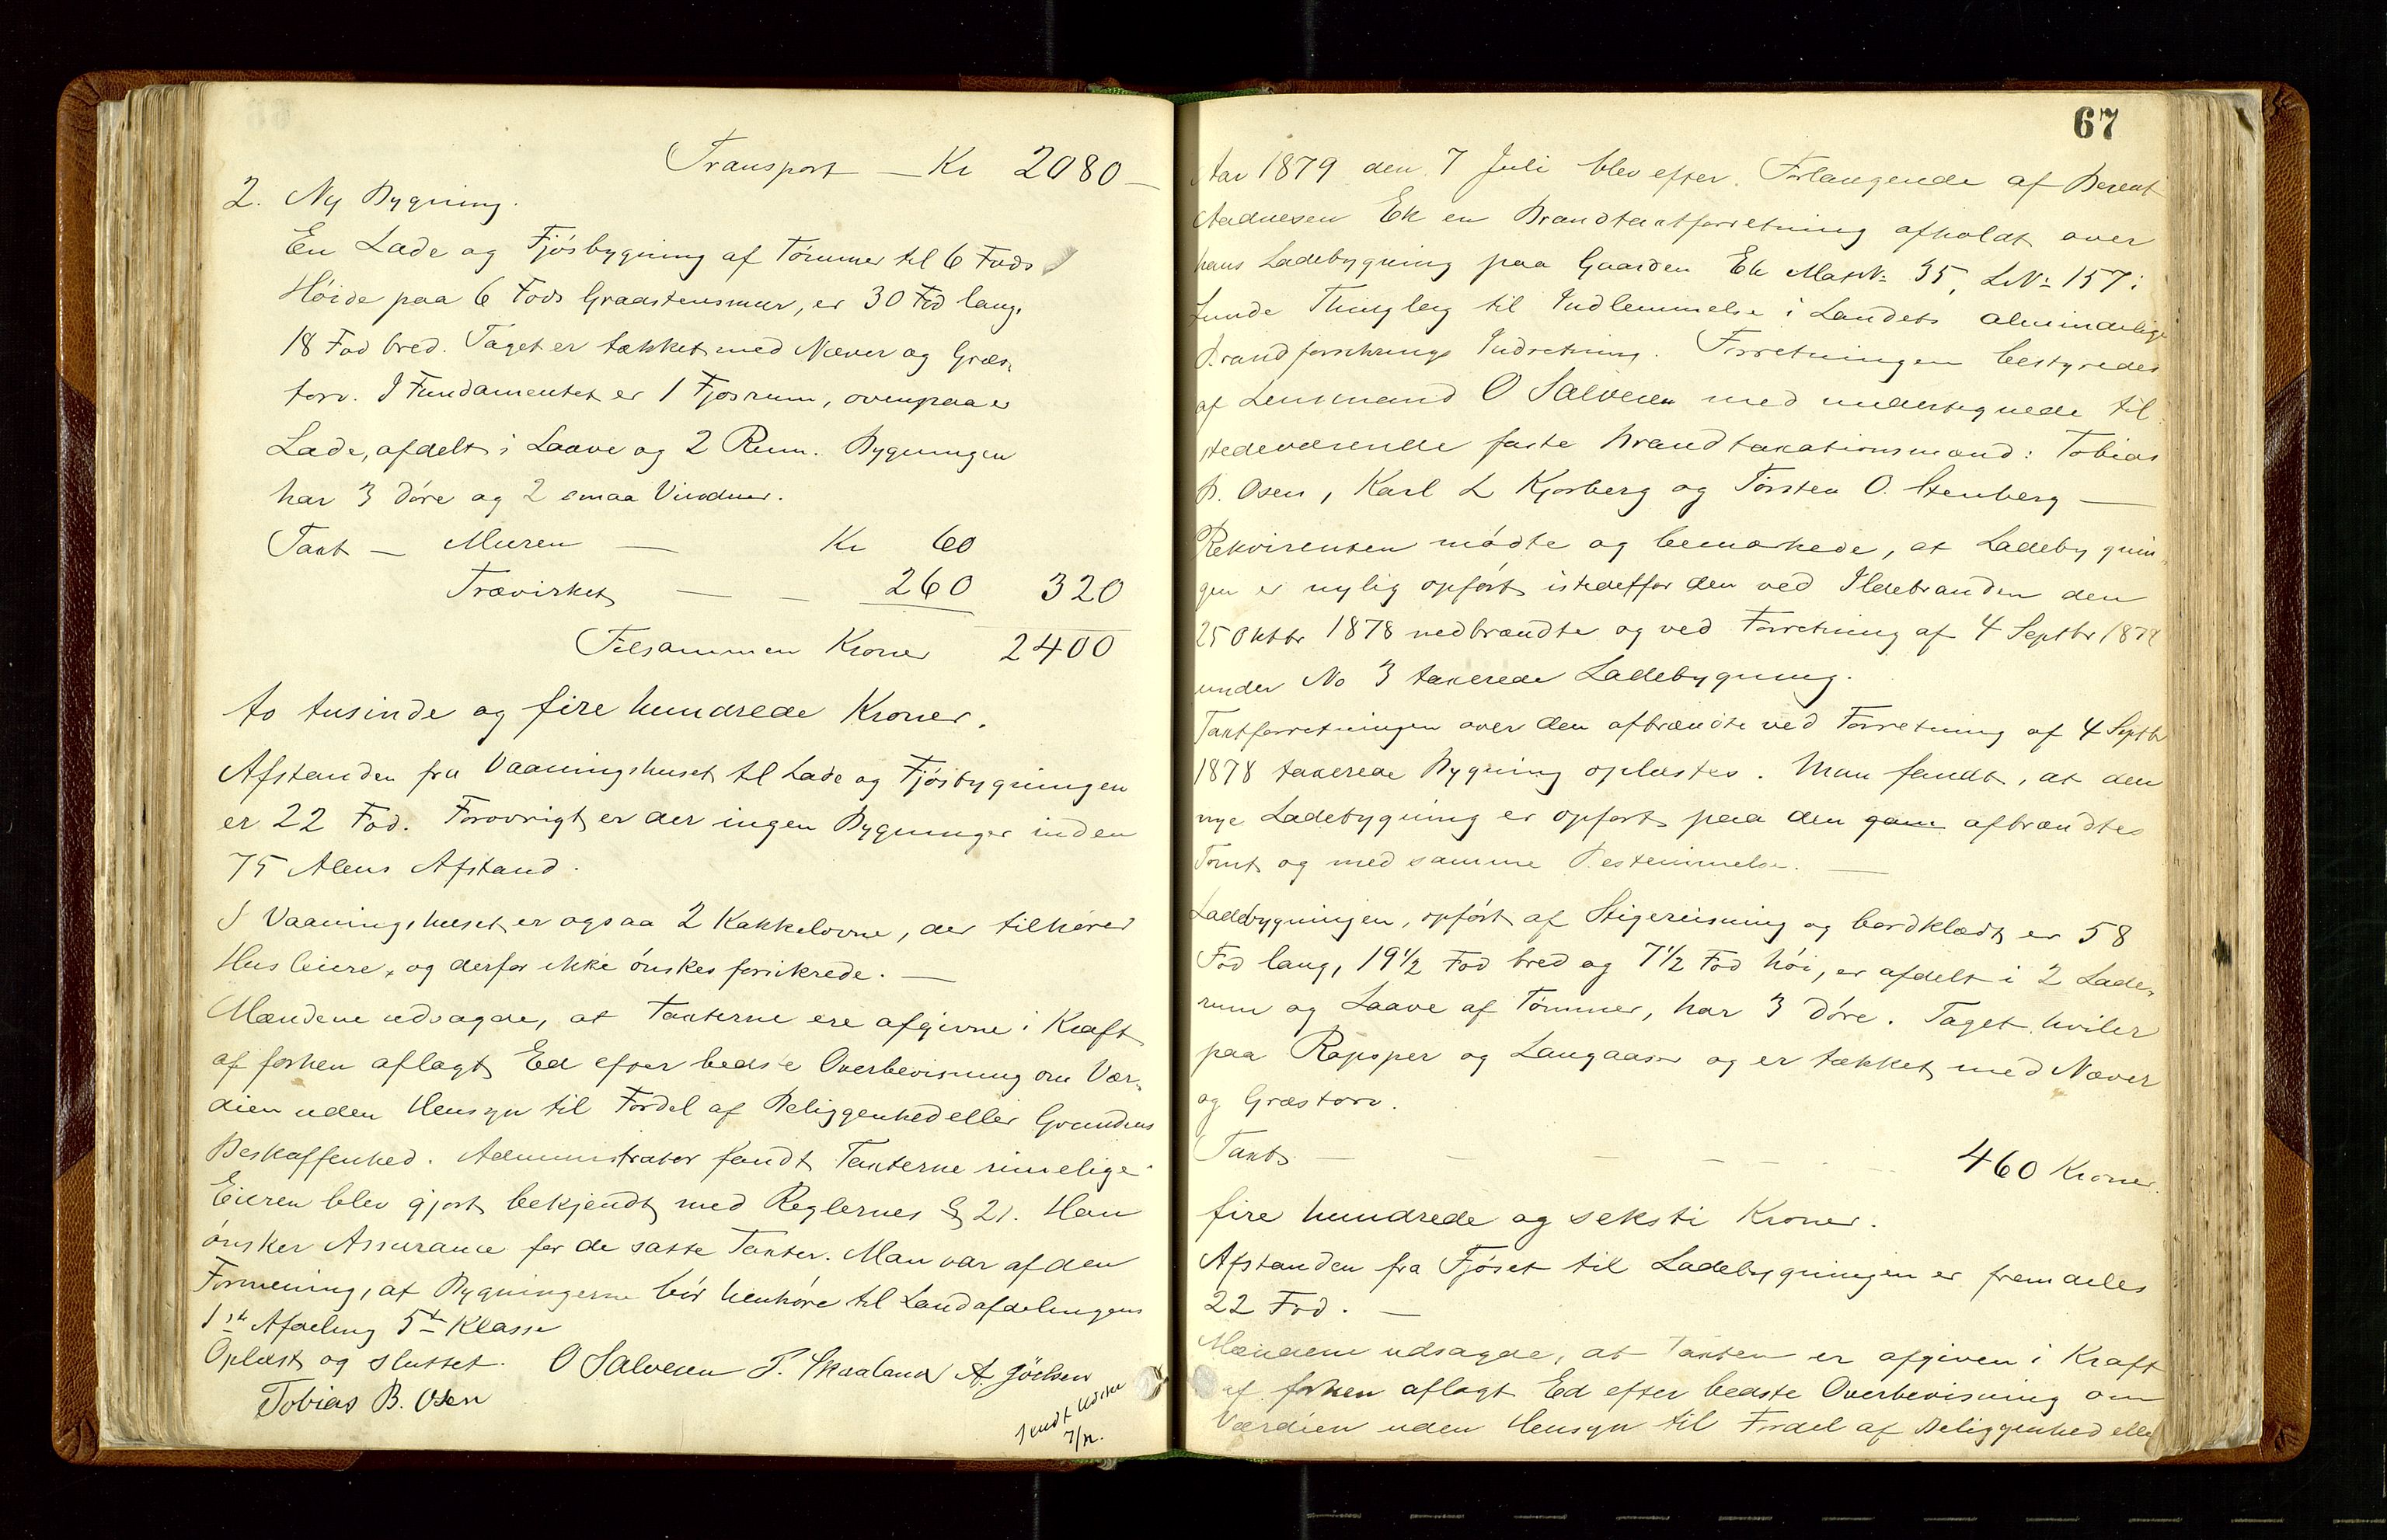 Transport — Kr 2080 —
2. Ny Bygning.
En Lade og Fjøsbygning af Tømmer til 6 Fods
Høide paa 6 Fods Graastensmur, er 30 Fod lang,
18 Fod bred. Taget er tækket med Næver og Græs,
torv. I Fundamentet er 1 Fjøsrum, ovenpaa er
Lade, afdelt i Laave og 2 Rum. Bygningen
har 3 Døre og 2 smaa Vinduer.
Taxt — Muren — Kr 60
Trævirket — — 260 320
Tilsammen Kroner 2400
to tusinde og fire hundrede Kroner.
Afstanden fra Vaaningshuset til Lade og Fjøsbygningen
er 22 Fod. Forøvrigt er der ingen Bygninger inden
75 Alens Afstand.
I Vaaningshuset er ogsaa 2 Kakkelovne, der tilhører
Husleiere, og derfor ikke ønskes forsikrede. —
Mændene udsagde, at Taxterne ere afgivne i Kraft
af forhen aflagt Ed efter bedste Overbevisning om Vær,
dien uden Hensyn til Fordel af Beliggenhed eller Grundens
Beskaffenhed. Administrator fandt Taxterne rimelige.
Eieren blev gjort bekjendt med Reglernes § 21. Han
ønsker Assurance for de satte Taxter. Man var af den
Formening, at Bygningerne bør henhøre til Landafdelingens
1ste Afdeling 5te Klasse
Oplæst og sluttet. O Salvesen T. Skaaland A. Jölsen
Tobias B. Osen
7/12.
67
Aar 1879 den 7 Juli blev efter Forlangende af Berent
Aadnesen Ek en Brandtaxtforretning afholdt over
hans Ladebygning paa Gaarden Ek Mat№ 35, L№ 157 i
Lunde Thinglag til Indlemmelse i Landets almindelige
Brandforsikrings Indretning. Forretningen bestyredes
af Lensmand O Salvesen med undertegnede til
stedeværende faste Brandtaxationsmænd: Tobias
B. Osen, Karl L Kjørberg og Torsten O. Stenberg —
Rekvirenten mødte og bemærkede, at Ladebygnin
gen er nylig opført istedetfor den ved Ildebranden den
25 Oktbr 1878 nedbrændte og ved Forretning af 4 Septbr 1878
under No 3 taxerede Ladebygning.
Taxtforretningen over den afbrændte ved Forretning af 4 Septbr
1878 taxerede Bygning oplæstes. Man fandt, at den
nye Ladebygning er opført paa den gam afbrændtes
Tomt og med samme Bestemmelse. —
Ladebygningen, opført af Stigereisning og bordklædt er 58
Fod lang, 19½ Fod bred og 7½ Fod høi, er afdelt i 2 Lade,
rum og Laave af Tømmer, har 3 Døre. Taget hviler
paa Rapsper og Langaaser og er tækket med Næver
og Græstorv.
Taxt — — — — — 460 Kroner.
fire hundrede og seksti Kroner.
Afstanden fra Fjøset til Ladebygningen er fremdeles
22 Fod. —
Mændene udsagde, at Taxten er afgiven i Kraft
af forhen aflagt Ed efter bedste Overbevisning om
Værdien uden Hensyn til Fordel af Beliggenhed eller